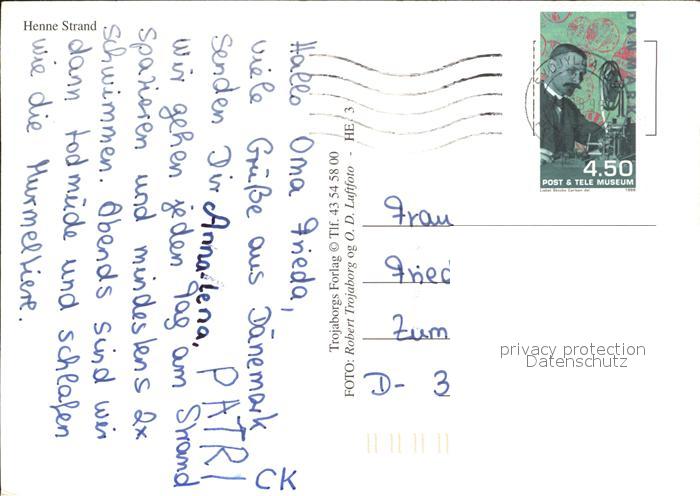 Henne Strand
Hallo Oma Frieda,
viele Grüße aus Dänemark
senden Dir Anna-Lena, PATRICK
wir gehen jeden Tag am Strand
spazieren und mindestens 2x
schwimmen. Abends sind wir
dann todmüde und schlafen
wie die Murmeltiere.
Trojaborgs Forlag © Tlf. 43 54 58 00
FOTO: Robert Trojaborg og O. D. Luftfoto - HE. 3
DANMARK
4.50
POST & TELE MUSEUM
1998
Frau
Fried
Zum
D- 3
privacy protection
Datenschutz